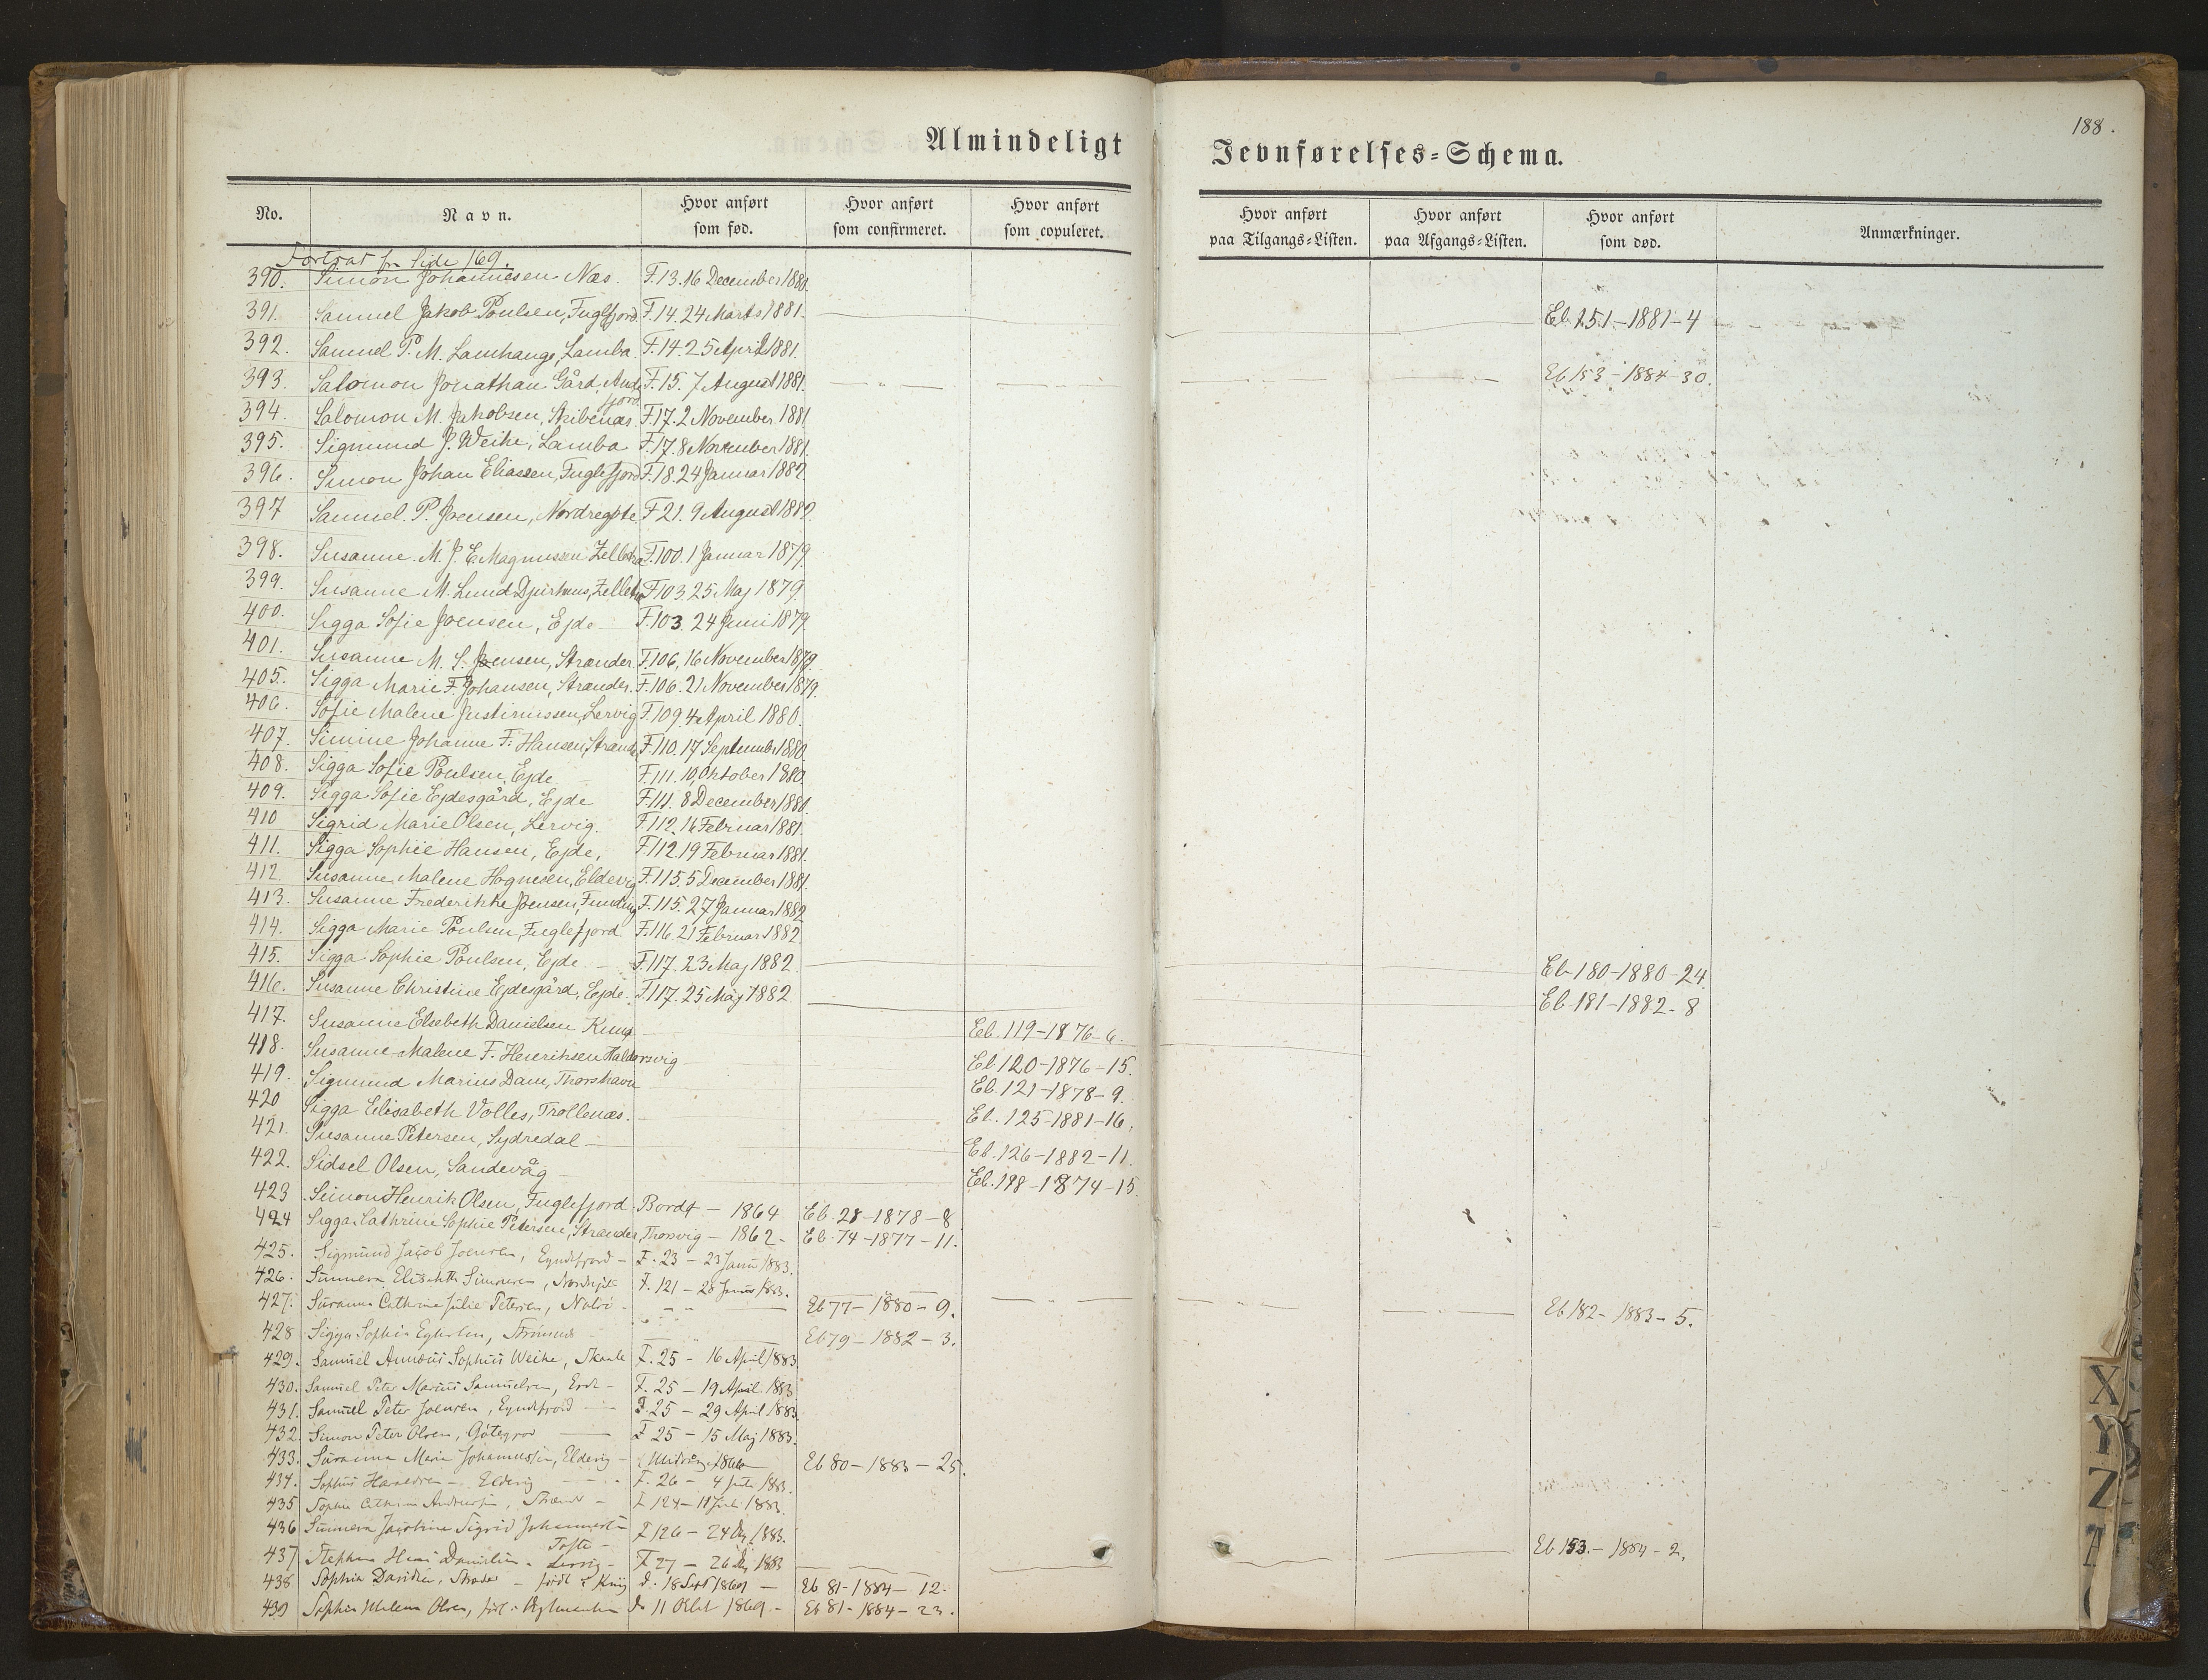 188.
Almindeligt Jevnførelses=Schema.
No. Navn. Hvor anført som fød. Hvor anført som confirmeret. Hvor anført som copuleret. Hvor anført paa Tilgangs=Listen. Hvor anført paa Afgangs=Listen. Hvor anført som død. Anmærkninger.
Fortsat fr Side 169.
390. Simon Johannesen Næs. F. 13. 16 December 1880.
391. Samuel Jakob Poulsen, Fuglefjord. F. 14. 24 Marts 1881. Eb. 151-1881-4
392. Samuel P. M. Lamhauge, Lamba. F. 14. 25 April 1881.
393. Salomon Jonathan Gård, Andefjord. F. 15. 7 August 1881. Eb 153-1884-30.
394. Salomon M. Jakobsen, Skibenæs. F. 17. 2 November 1881
395. Sigmund J. Weihe, Lamba F. 17. 8 November 1881.
396. Simon Johan Eliassen, Fuglefjord F. 18. 24 Januar 1882.
397 Samuel. P. Joensen, Nordregøte F 21. 9 August 1882.
398. Susanne. M. J. E. Magnussen Zelletræ F. 100. 1 Januar 1879.
399. Susanne M. Lund Djurhuus, Zelletræ F 103. 25 Maj 1879.
400. Sigga Sofie Joensen, Ejde F. 103. 24 Juni 1879.
401. Susanne M. S. Joensen, Strænder. F. 106, 16 November 1879.
405. Sigga Marie F. Johansen, Strænder. F. 106. 21 November 1879.
406. Sofie Malene Justinussen, Lervig F. 109. 4 April 1880.
407. Simine Johanne F. Hansen, Strænder F. 110. 17 September 1880.
408. Sigga Sofie Poulsen, Ejde F. 111. 10 Oktober 1880.
409. Sigga Sofie Ejdesgård, Ejde F. 111. 8 December 1880.
410 Sigrid Marie Olsen, Lervig. F. 112. 16 Februar 1881.
411. Sigga Sophie Hansen, Ejde, F. 112. 19 Februar 1881.
412. Susanne Malene Hognesen, Eldevig F. 115. 5 December 1881.
413. Susanne Frederikke Joensen, Funding F. 115. 27 Januar 1882
414. Sigga Marie Poulsen, Fuglefjord. F. 116. 21 Februar 1882.
415. Sigga Sophie Poulsen, Ejde F. 117. 23 Maj 1882. Eb 180-1880-24.
416. Susanne Christine Ejdesgård, Ejde. F. 117. 25 Maj 1882 Eb 181-1882-8
417. Susanne Elsebeth Danielsen Kunø Eb. 119-1876-6.
418. Susanne Malene F. Henriksen Haldersvig Eb 120-1876-15.
419. Sigmund Marius Dam, Thorshavn Eb. 121-1878-9.
420 Sigga Elisabeth Volles, Trollenæs. Eb. 125-1881-16.
421. Susanne Petersen, Sydredal Eb. 126-1882-11.
422. Sidsel Olsen, Sandevåg Eb. 198-1874-15.
423 Simon Henrik Olsen, Fuglefjord. Bordø - 1864 Eb. 28-1878-8
424 Sigga Cathrine Sophie Petersen, Strænder, Thorsvig - 1862 - Eb. 74-1877-11.
425. Sigmund Jacob Joensen, Eyndefjord F. 23 - 23 Janu 1883.
426. Sunneva Elisabeth Simonsen, F. 121 - 28 Januar 1883.
427. Susanne Cathrine Julie Petersen, Nolsø Eb 77-1880-9. Eb 182-1883-5.
428 Sigga Sophie Egholm, Strømnæs Eb 79-1882-3.
429. Samuel Sophus Weihe, Skaale F. 25 - 16 April 1883.
430. Samuel Peter Marius Samuelsen, F. 25 - 19 April 1883
431. Samuel Peter Joensen, Eyndefjord F. 25 - 29 April 1883.
432. Simon Peter Olsen, F. 25 - 15 Maj 1883.
433. Susanna Maria Johannessen, Eldevig 1866 Eb 80-1883-25.
434. Sophus Hansen Eldevig F. 26 - 4 Juli 1883.
435 Sophie Cathrine Andreasen, Strænder F. 124 - 11 Juli 1883.
436 Sunneva Jacobina Sigrid Johannesen Tofte F 126 - 24 1883.
437 Stephan Hans Danielsen Lervig F 27 - 26 1883 Eb 153.-1884-2.
438 Sophie Davidsen, Strænder - født i d. 18 Sept 1869 Eb 81-1884-12.
439 Sophie Malene Olsen, født i d 11 Oktbr 1869 Eb 81-1884-23.
X
Y
Z